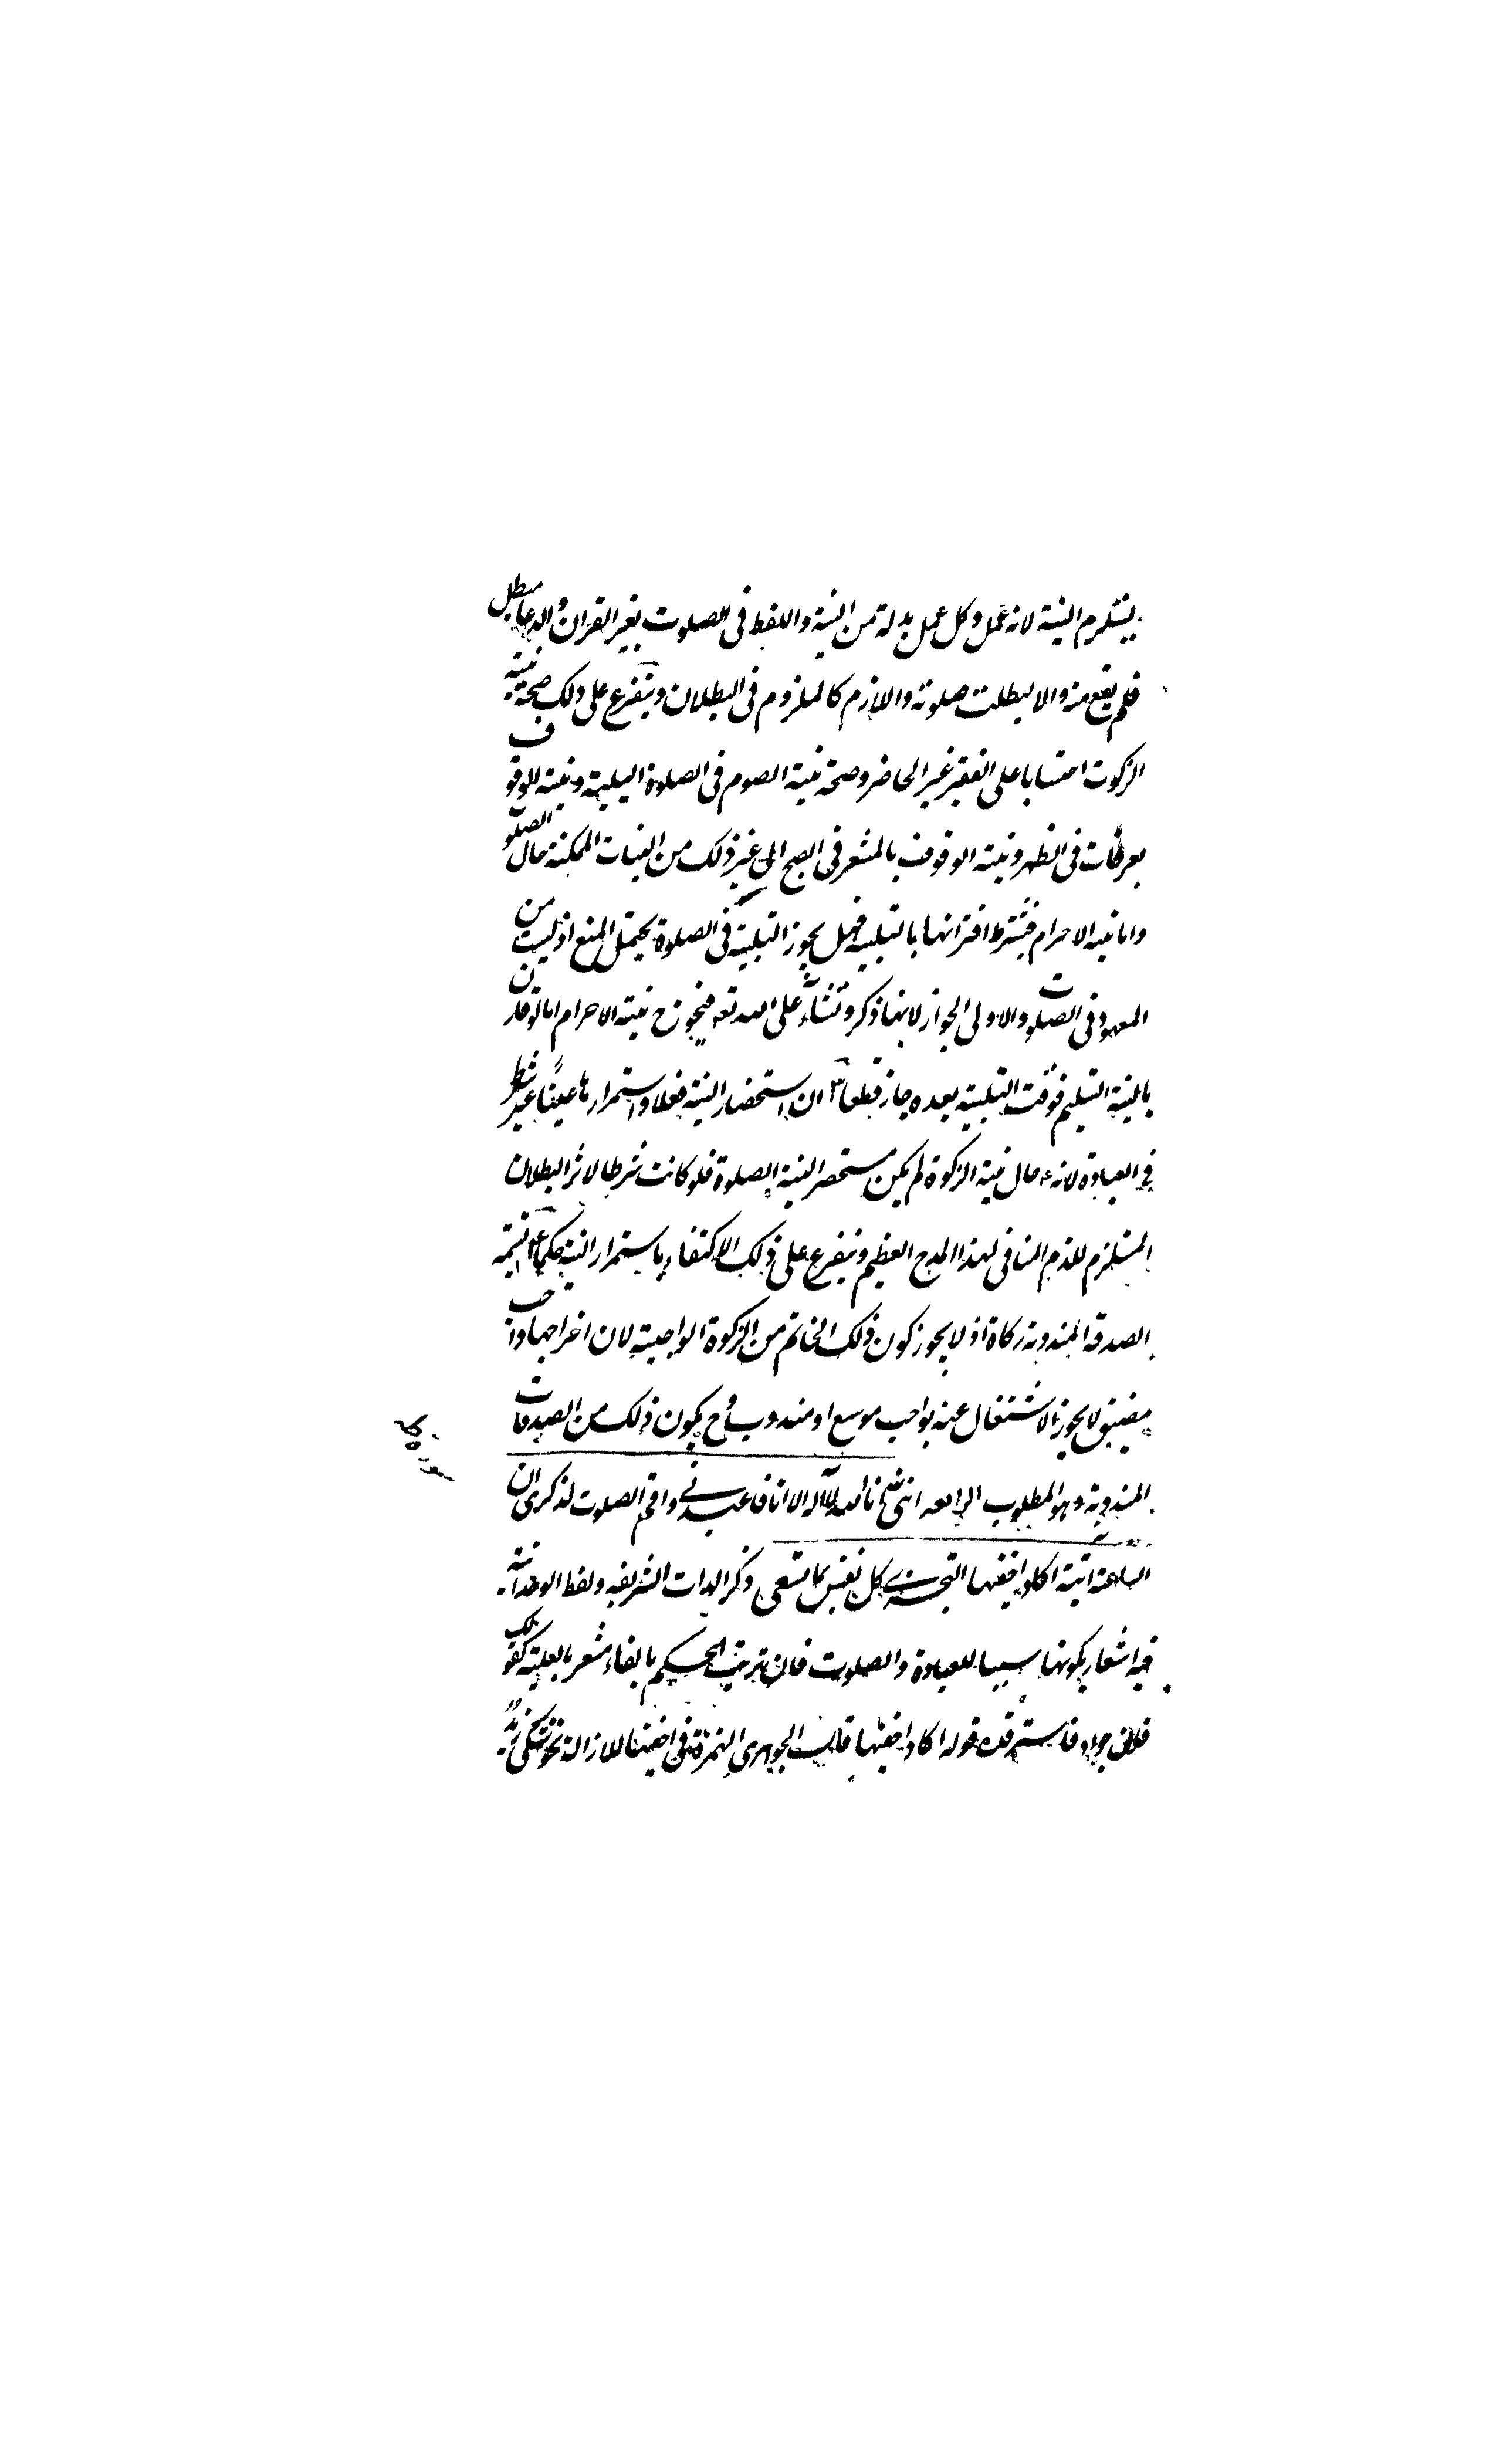 يستلزم النية لانه عمل وكل عمل بدله من النية واللفظ فى الصلوت بغير القران والدعا مبطل
فلم يقع منه والا لبطلت صلوته واللازم كالملزوم فى البطلان ويتفرع على ذلك صحة نية
الزكوت احتسابا على الفقير غير الحاضر وصحة نية الصوم فى الصلوة اليلية ونية للوقوف
بعرفات فى الظهر ونية الوقوف بالمشعر فى الصبح الى غير ذلك من النيات الممكنة حال الصلوت
واما نية الاحرام فيشترط اقترانها بالتلبية فهل يجوز التلبية فى الصلوة يحتمل المنع اذ ليست من
المعهود فى الصلوت والاولى الجواز لانها ذكر وثناء على الله تعه فيجوز ح نية الاحرام اما لو قارن
بالنية التسليم فوقت التلبية بعده جاز قطعا ٣ ان استحضار النية فعلا واستمرارها عينا غير شرط
فى العبادة لانه ع حال نية الزكوة لم يكن مستحضر النية الصلوة فلو كانت شرطا لاثر البطلان
المستلزم للذم المنافى لهذا المدح العظيم ويتفرع على ذلك الاكتفاء باستمرار النية حكما ٤ تسمية
الصدقة المندوبة زكاة اذ لا يجوز كون ذلك الخاتم من الزكوة الواجبة لان اخراجها واجب
مضيق لا يجوز الاشتغال عنه بواجب موسع او مندوب وح يكون ذلك من الصدقات
المندوبة وهو المطلوب الرابعه اننى انا الله لا اله الا انا فاعبدنى واقم الصلوت لذكرى ان
الساعة اتية اكاد اخفيها لتجزى كل نفس بما تسعى ذكر الذات الشريفه ولفظ الوحدانية
فيه اشعار بكونها سببا للعبادة والصلوت فان ترتيب الحكم بالفاء مشعر بالعلية كقولك
فلان جواد فاسترفده قوله اكاد اخفيها قال الجوهرى الهمزة فى اخفيها للازالة نحو شكى زيد